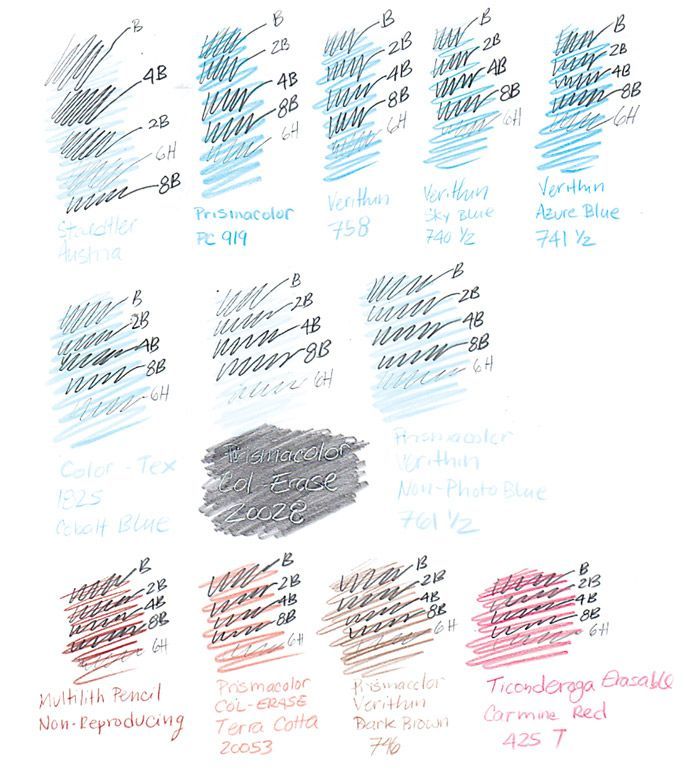 B
4B
2B
6H
8B
Staedtler
Austria
B
2B
4B
8B
6H
Prismacolor
PC 919
B
2B
4B
8B
6H
Verithin
758
B
2B
4B
8B
6H
Verithin
Sky Blue
740 1/2
B
2B
4B
8B
6H
Verithin
Azure Blue
741 1/2
B
2B
4B
8B
6H
Color-Tex
1925
Cobalt Blue
B
2B
4B
8B
6H
Prismacolor
Col-Erase
20028
B
2B
4B
8B
6H
Prismacolor
Verithin
Non-Photo Blue
761 1/2
B
2B
4B
8B
6H
Multilith Pencil
Non-Reproducing
B
2B
4B
8B
6H
Prismacolor
COL-ERASE
Terra Cotta
20053
B
2B
4B
8B
6H
Prismacolor
Verithin
Dark Brown
746
B
2B
4B
8B
6H
Ticonderoga Erasable
Carmine Red
425 T